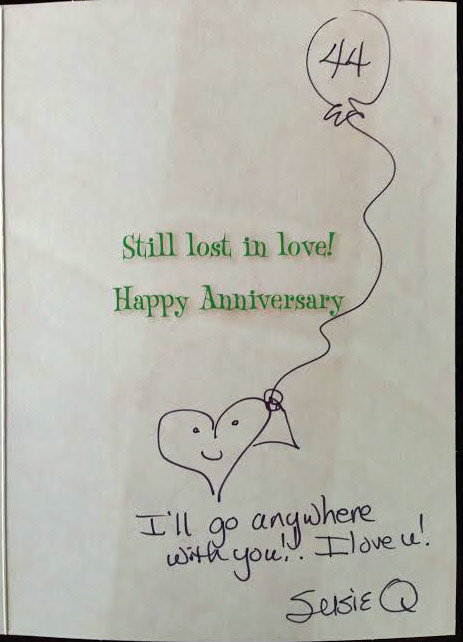 44
Still lost in love!
Happy Anniversary
I'll go anywhere
with you!! I love u!
Susie Q